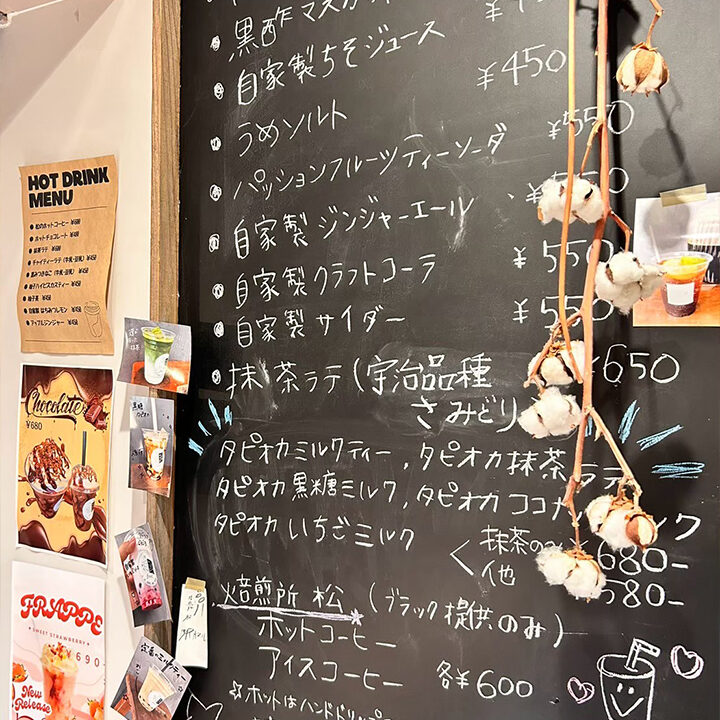 黒酢マスカ
自家製ちそジュース
¥450
うめソルト
¥550
パッションフルーツティーソーダ
自家製ジンジャーエール
¥550
自家製クラフトコーラ
¥550
自家製サイダー
抹茶ラテ(宇治品種
さみどり
¥650
タピオカミルクティー, タピオカ抹茶ラテ
タピオカ黒糖ミルク, タピオカココナ
ルク
タピオカいちごミルク
抹茶のみ 680-
他 580-
焙煎所 松 (ブラック提供のみ)
ホットコーヒー
アイスコーヒー
各¥600
☆ホットはハンドドリップ
HOT DRINK
MENU
ホットチョコレート
抹茶ラテ
チャイティーラテ
柚子茶
アップルジンジャー
Chocolate
¥680
FRAPPE
SWEET STRAWBERRY
¥690
New
Release